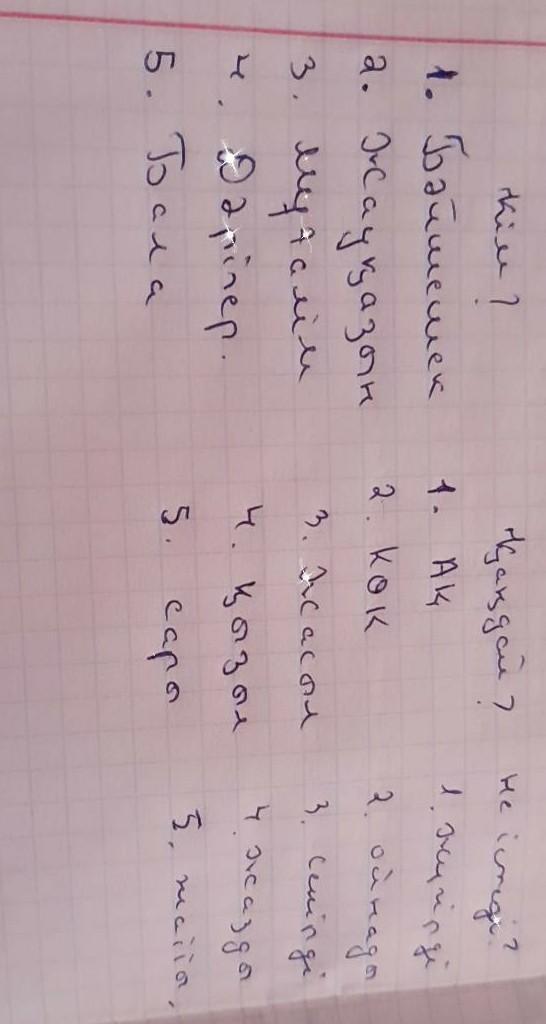 Кім? Қандай? Не істеді?
1. Бәйшешек 1. Ақ 1. жүгірді
2. Жауқазын 2. Көк 2. ойнады
3. Мұғалім 3. Жасыл 3. секірді
4. Дәрігер. 4. Қызыл 4. жазды
5. Бала 5. сары 5.